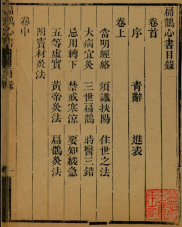 扁鵲心書目錄
卷首
序 青辭 進表
卷上
當明經絡 須識扶陽 住世之法
大病宜灸 三世扁鵲 時醫三錯
忌用轉下 禁戒寒涼 要知緩急
五等虛實 黃帝灸法 扁鵲灸法
附竇材灸法
卷中